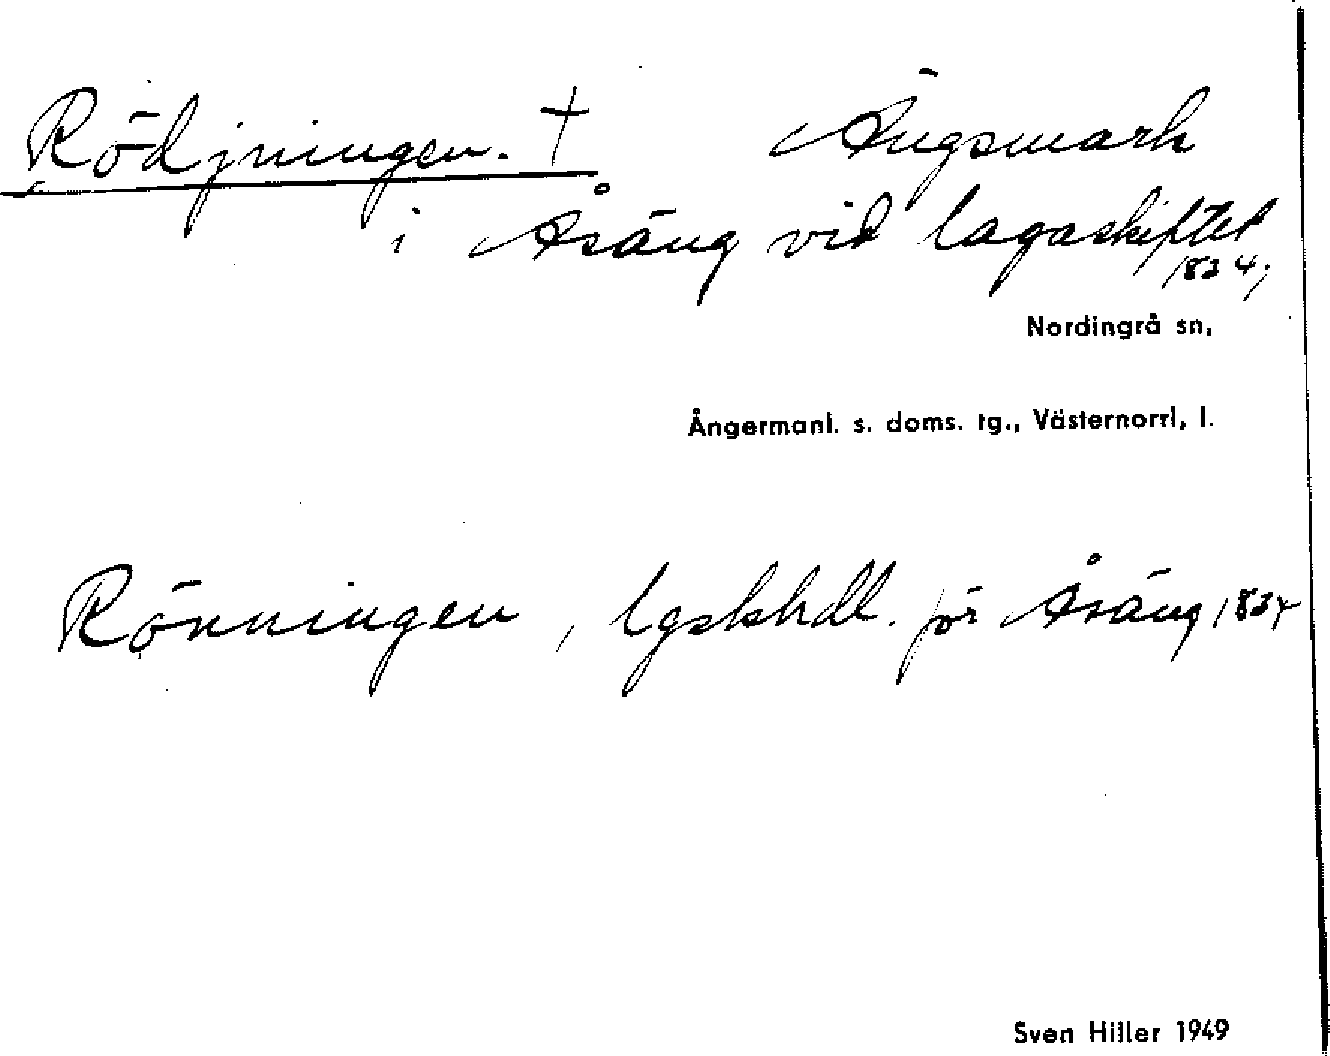 Rödjningen. † Ängsmark
i Åsäng vid lagaskiftet
1834;
Nordingrå sn,
Ångermanl. s. doms. tg., Västernorrl, l.
Rönningen, lgskhdl. för Åsäng 1834
Sven Hiller 1949